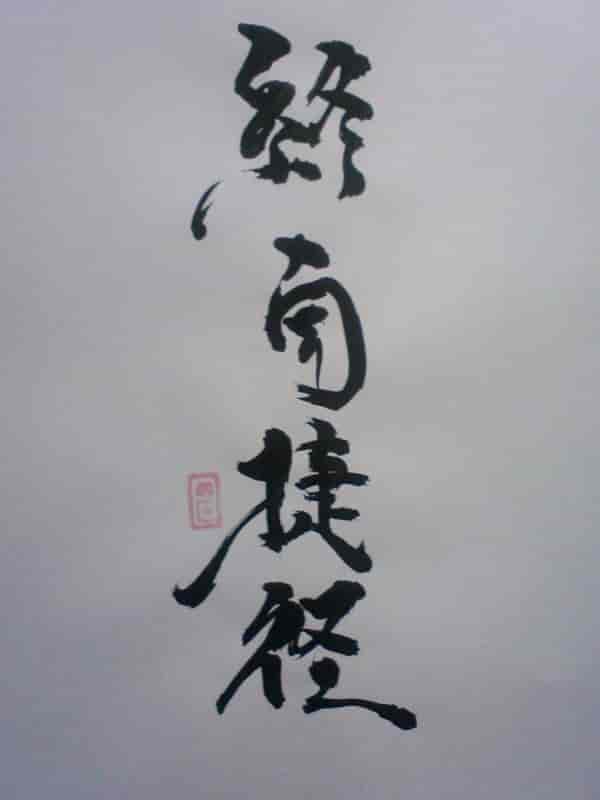 終南捷径